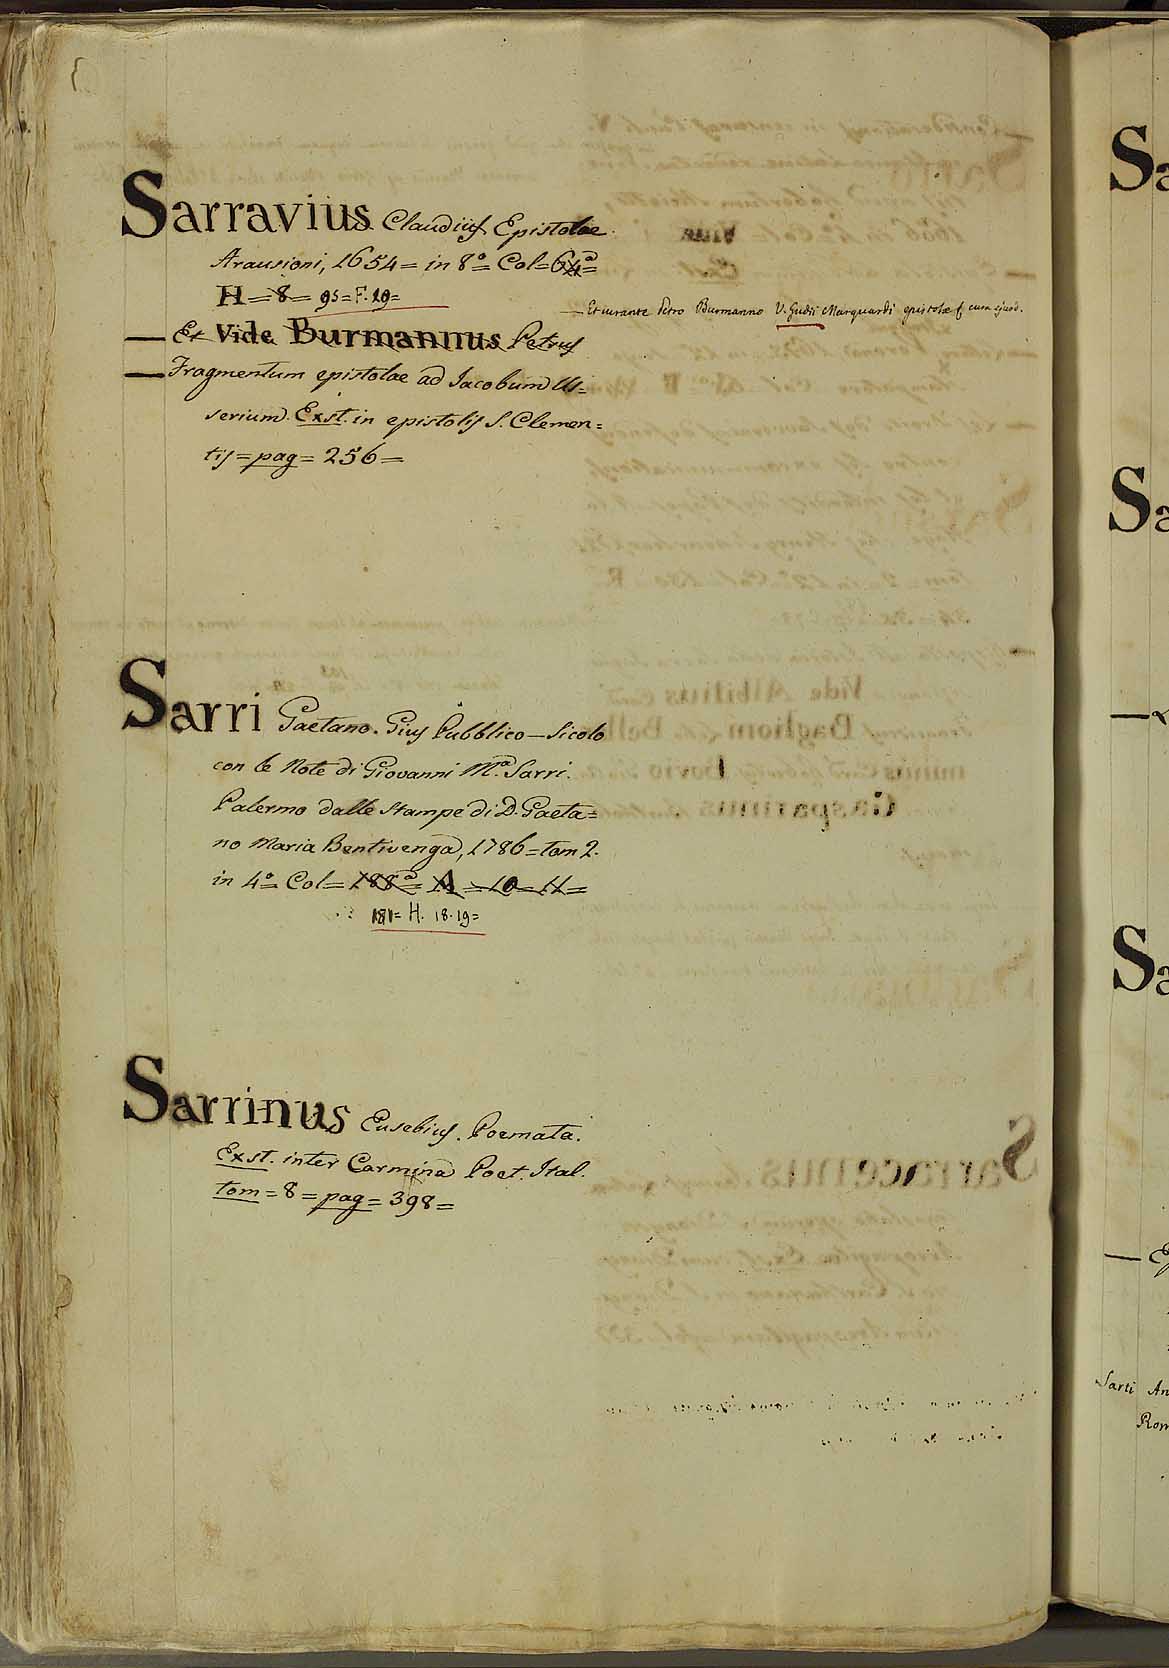 Sarravius Claudius Epistolae.
Arausioni, 1654= in 8º= Col=64ª=
H=8= 95=F.19=
— Et curante Petro Burmanno V. Gudii Marquardi epistolae cum ejusd.
— Et Vide Burmannus Petrus
— Fragmentum epistolae ad Jacobum Us=
serium. Exst. in epistolis S. Clemen=
tis=pag=256=
Sarri Gaetano. Gius Pubblico—Sicolo
con le Note di Giovanni Mª. Sarri.
Palermo dalle stampe di D. Gaeta=
no Maria Bentivenga, 1786=tom 2.
in 4º= Col=188ª= A=10=11=
181= H. 18.19=
Sarrinus Eusebius. Poemata.
Exst. inter Carmina Poet. Ital.
tom=8=pag=398=
Sa
Sa
Sa
Sarti An
Rom